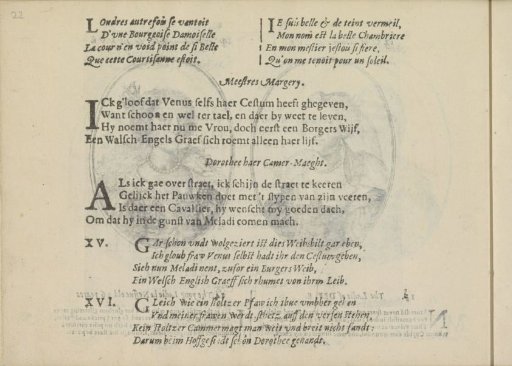 22
Londres autrefois se vantoit
D'vne Bourgeoise Damoiselle
La cour n'en void point de si Belle
Que cette Courtisanne estoit.
IE suis belle & de teint vermeil,
Mon nom est la belle Chambriere
En mon mestier jestou si fiere,
Qu'on me tenoit pour un soleil.
Meestres Margery.
ICk g'loof dat Venus selfs haer Cestum heeft ghegeven,
Want schoon en wel ter tael, en daer by weet te leven,
Hy noemt haer nu me Vrou, doch eerst een Borgers Wijf,
Een Walsch-Engels Graef sich roemt alleen haer lijf.
Dorothee haer Camer-Maeght.
ALs ick gae over straet, ick schijn de straet te keeren
Gelijck het Pauwken doet met 't slypen van zijn veeren,
Is daer een Cavallier, hy wenscht my goeden dach,
Om dat hy in de gunst van Meladi comen mach.
XV.
GAr schon vnds wolgeziert ist dies Weibsbilt
Ich gloub fraw Venus selbst hadt ihr den Cestum geben,
Sieh nun Meladi nent, zufor ein Burgers Weib,
Ein Welsch English Graeff sich rhumet von ihrem Leib.
XVI.
GLeich wie ein stoltzer Pfaw ich thue vmbher gehen
Vnd meiner frawen werdt stehtz auff den versen stehen,
Kein stoltzer Cammermagt man weit vnd breit nicht fandt:
Darum beim Hoffgesindt schon Dorothee genandt.